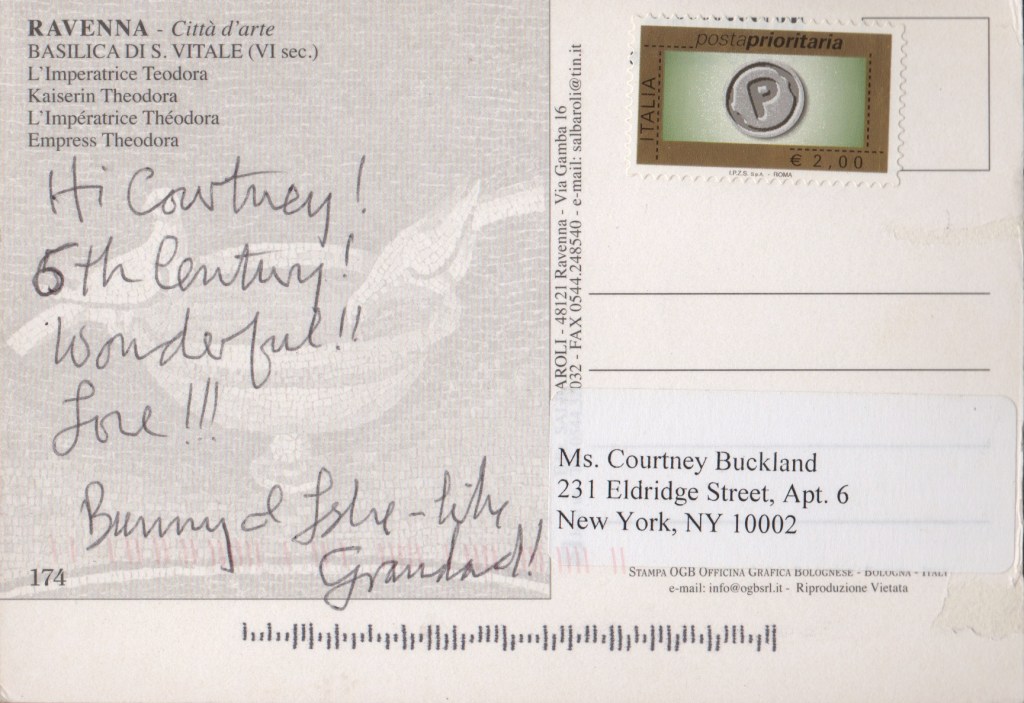 RAVENNA - Città d'arte
BASILICA DI S. VITALE (VI sec.)
L'Imperatrice Teodora
Kaiserin Theodora
L'Impératrice Théodora
Empress Theodora
Hi Courtney!
6th Century!
Wonderful!!
Love!!!
Bunny &
Grandad!
174
AROLI - 48121 Ravenna - Via Gamba 16
032 - FAX 0544.248540 - e-mail: salbaroli@tin.it
postaprioritaria
ITALIA
P
€ 2,00
I.P.Z.S. S.p.A. - ROMA
Ms. Courtney Buckland
231 Eldridge Street, Apt. 6
New York, NY 10002
STAMPA OGB OFFICINA GRAFICA BOLOGNESE - BOLOGNA - ITALY
e-mail: info@ogbsrl.it - Riproduzione Vietata